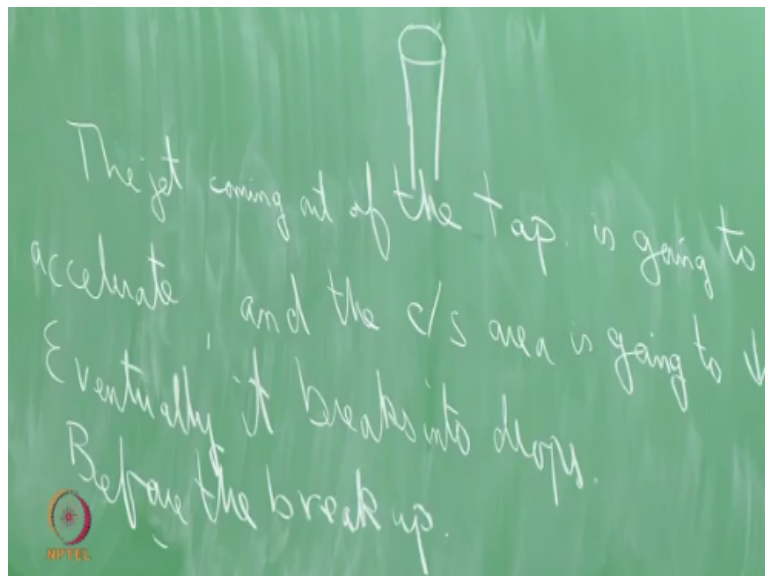 The jet coming out of the tap. is going to
accelerate, and the c/s area is going to ↓
Eventually it breaks into drops.
Before the break up.
NPTEL